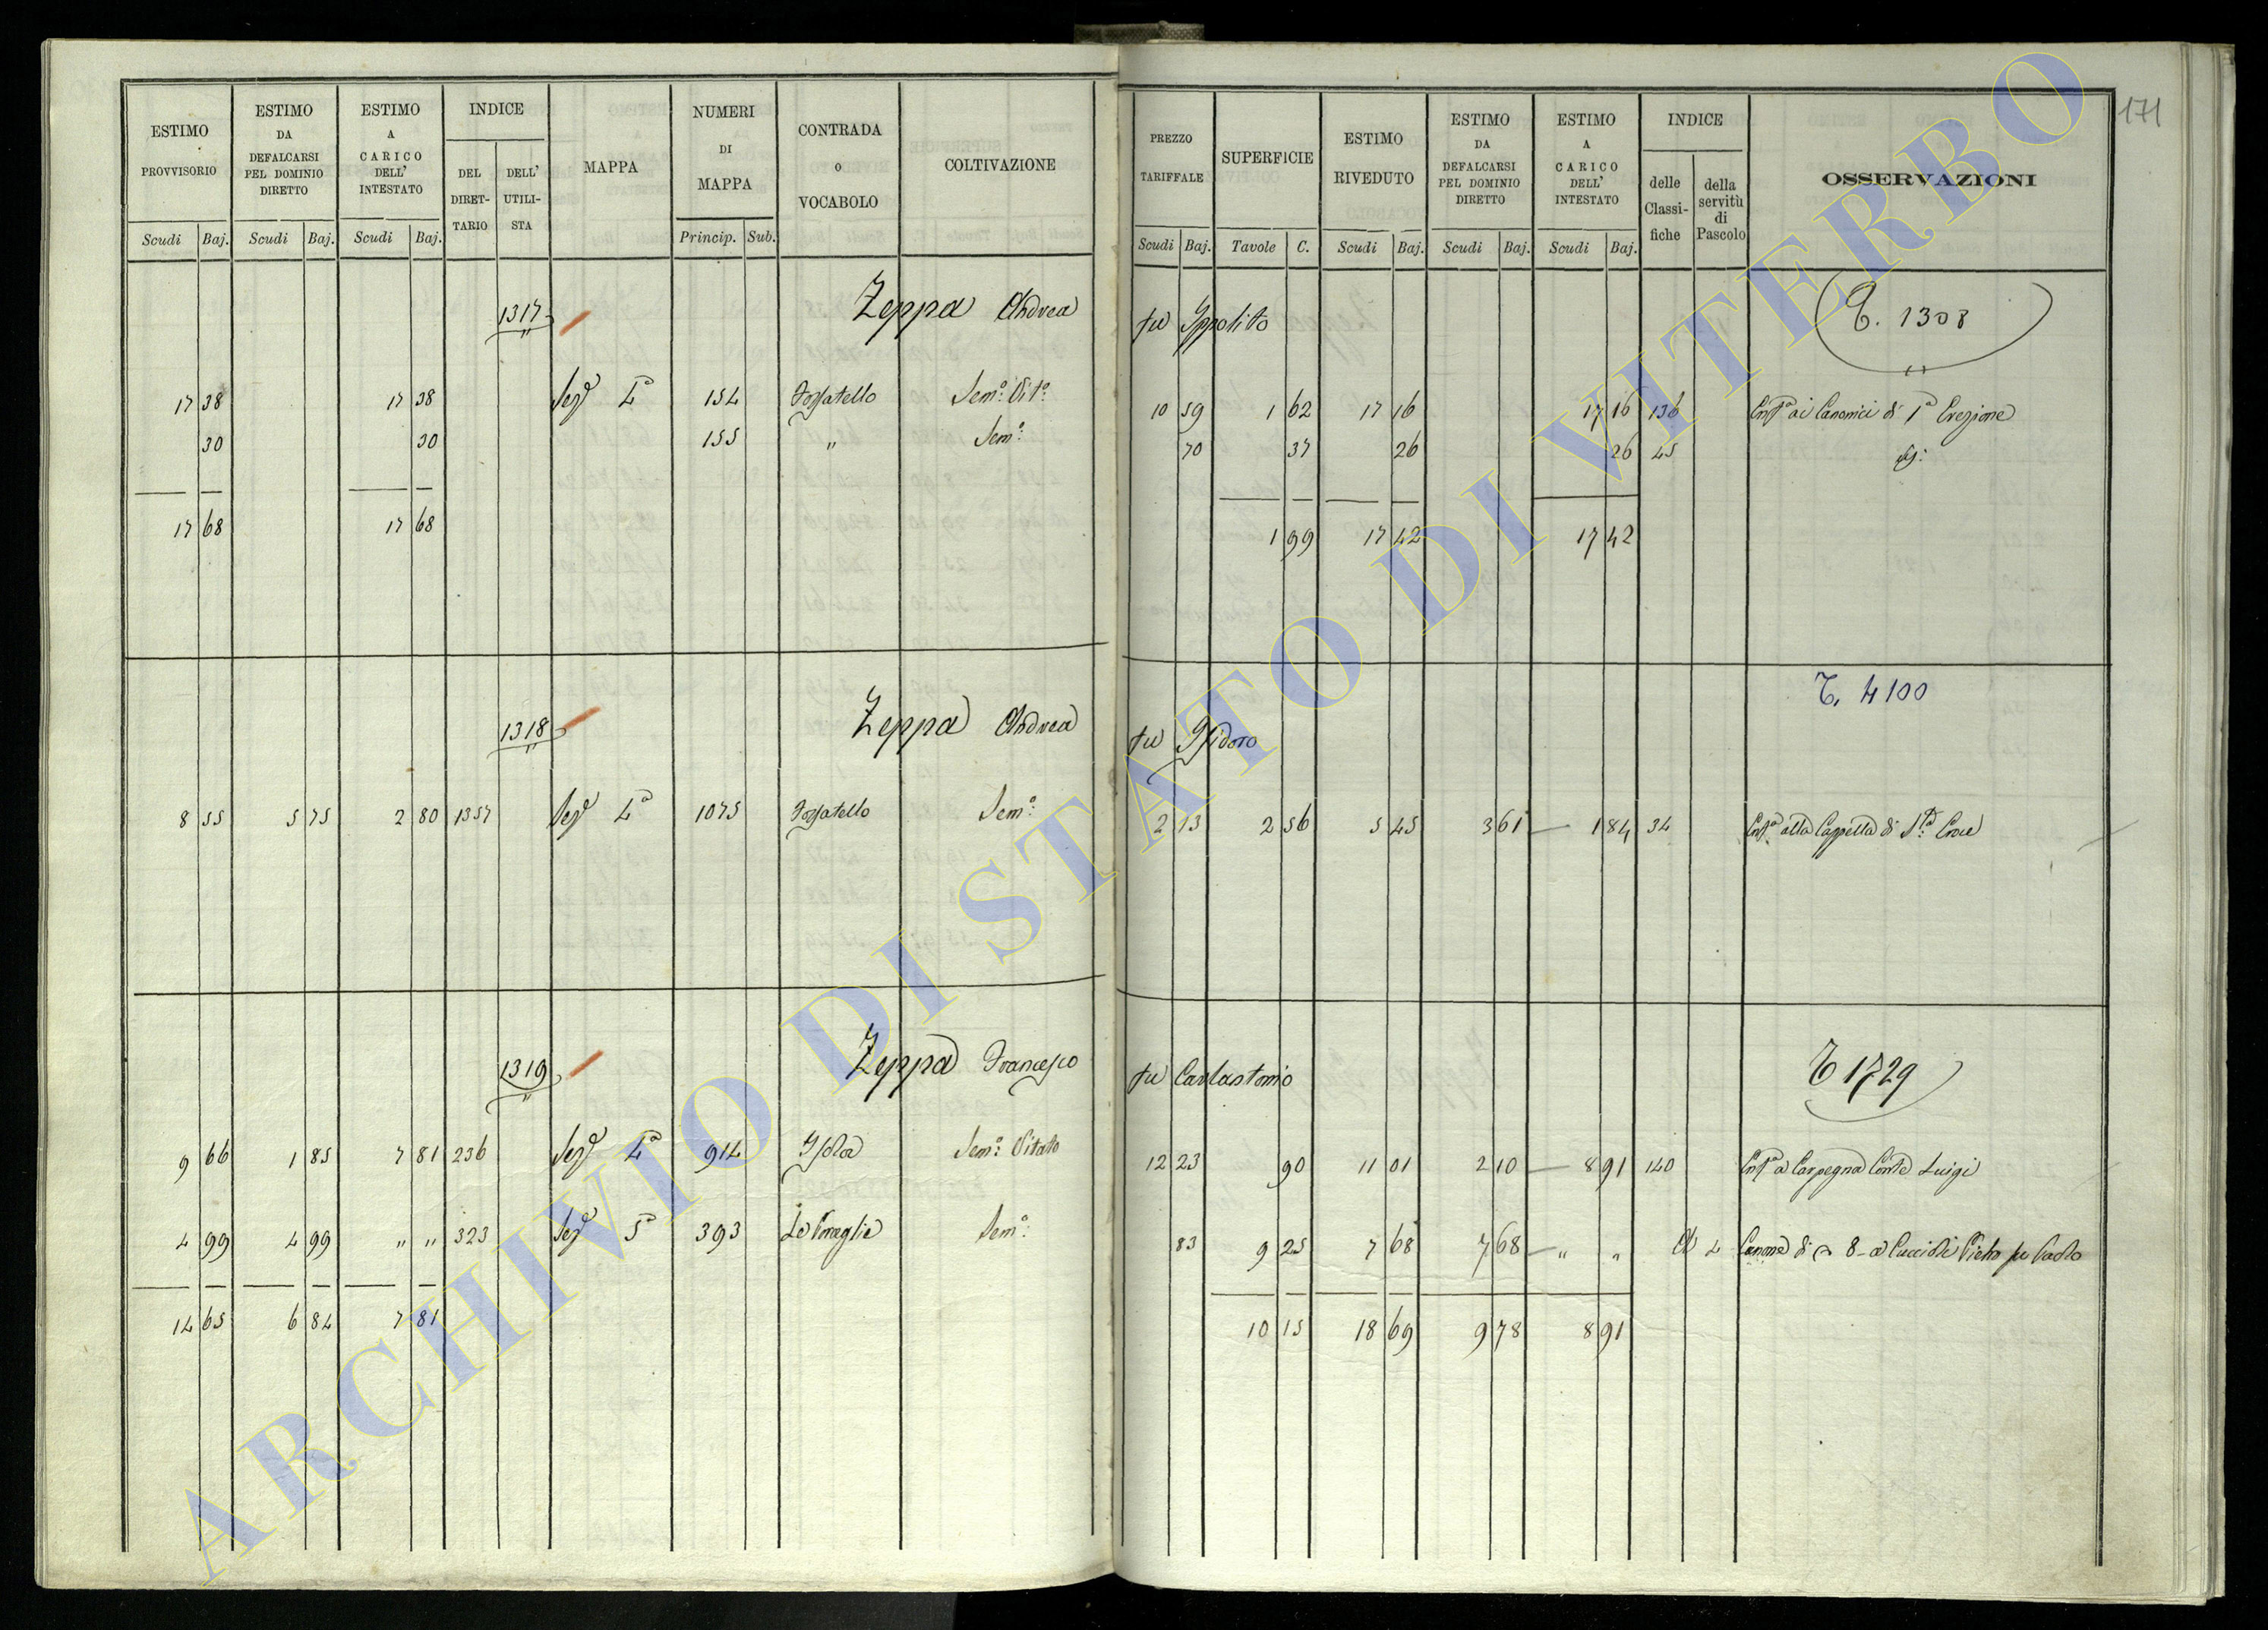 171
ESTIMO PROVVISORIO
ESTIMO DA DEFALCARSI PEL DOMINIO DIRETTO
ESTIMO A CARICO DELL' INTESTATO
INDICE
DEL DIRET-TARIO
DELL' UTILI-STA
MAPPA
NUMERI DI MAPPA
CONTRADA o VOCABOLO
COLTIVAZIONE
PREZZO TARIFFALE
SUPERFICIE
ESTIMO RIVEDUTO
ESTIMO DA DEFALCARSI PEL DOMINIO DIRETTO
ESTIMO A CARICO DELL' INTESTATO
INDICE
delle Classi-fiche
della servitù di Pascolo
OSSERVAZIONI
Scudi Baj. Scudi Baj. Scudi Baj. Princip. Sub. Scudi Baj. Tavole C. Scudi Baj. Scudi Baj. Scudi Baj.
1317 Zeppa Andrea fu Ippolito 1308
17 38 17 38 Sez.e 4a 154 Fossatello Sem.o Vit.o 10 59 1 62 17 16 17 16 136 Ent.a ai Canonici di 1a Erezione
30 30 155 " Sem.o 70 37 26 26 45
17 68 17 68 1 99 17 42 17 42
1318 Zeppa Andrea fu Isidoro 4100
8 55 5 75 2 80 1357 Sez.e 4a 1075 Fossatello Sem.o 2 13 2 56 5 45 3 61 — 1 84 34 Ent.a alla Cappella di S.ta Croce
1319 Zeppa Francesco fu Carlantonio 1729
9 66 1 85 7 81 236 Sez.e 4a 914 Isola Sem.o Vitato 12 23 90 11 01 2 10 — 8 91 140 Ent.a a Carpegna Conte Luigi
4 99 4 99 " " 323 Sez.e 5a 393 Sem.o 83 9 25 7 68 7 68 — " " 4 Canone di 8 - a Pietro fu Paolo
14 65 6 84 7 81 10 15 18 69 9 78 8 91
ARCHIVIO DI STATO DI VITERBO